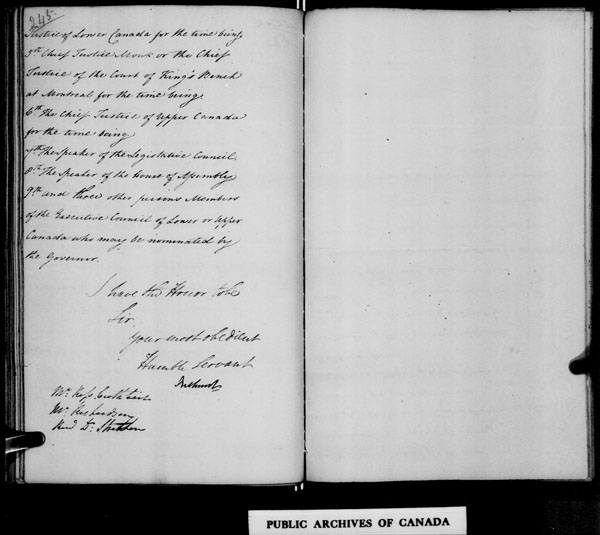 245.
Justice of Lower Canada for the time being,
5th Chief Justice Monk or the Chief
Justice of the Court of King's Bench
at Montreal for the time being.
6th The Chief Justice of Upper Canada
for the time being
7th The Speaker of the Legislative Council.
8th The Speaker of the House of Assembly
9th and three other persons Members
of the Executive Council of Lower or Upper
Canada who may be nominated by
the Governor.
I have the Honor to be
Sir
your most obedient
Humble Servant
Bathurst
Mr. Ross Cuthbert
Mr. Richardson
Revd. Dr. Strachan
PUBLIC ARCHIVES OF CANADA